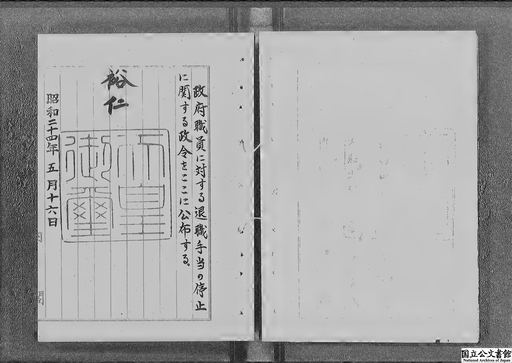 政府職員に対する退職手当の停止
に関する政令をここに公布する。
裕仁
天皇
御璽
昭和二十四年五月十六日
国立公文書館
National Archives of Japan